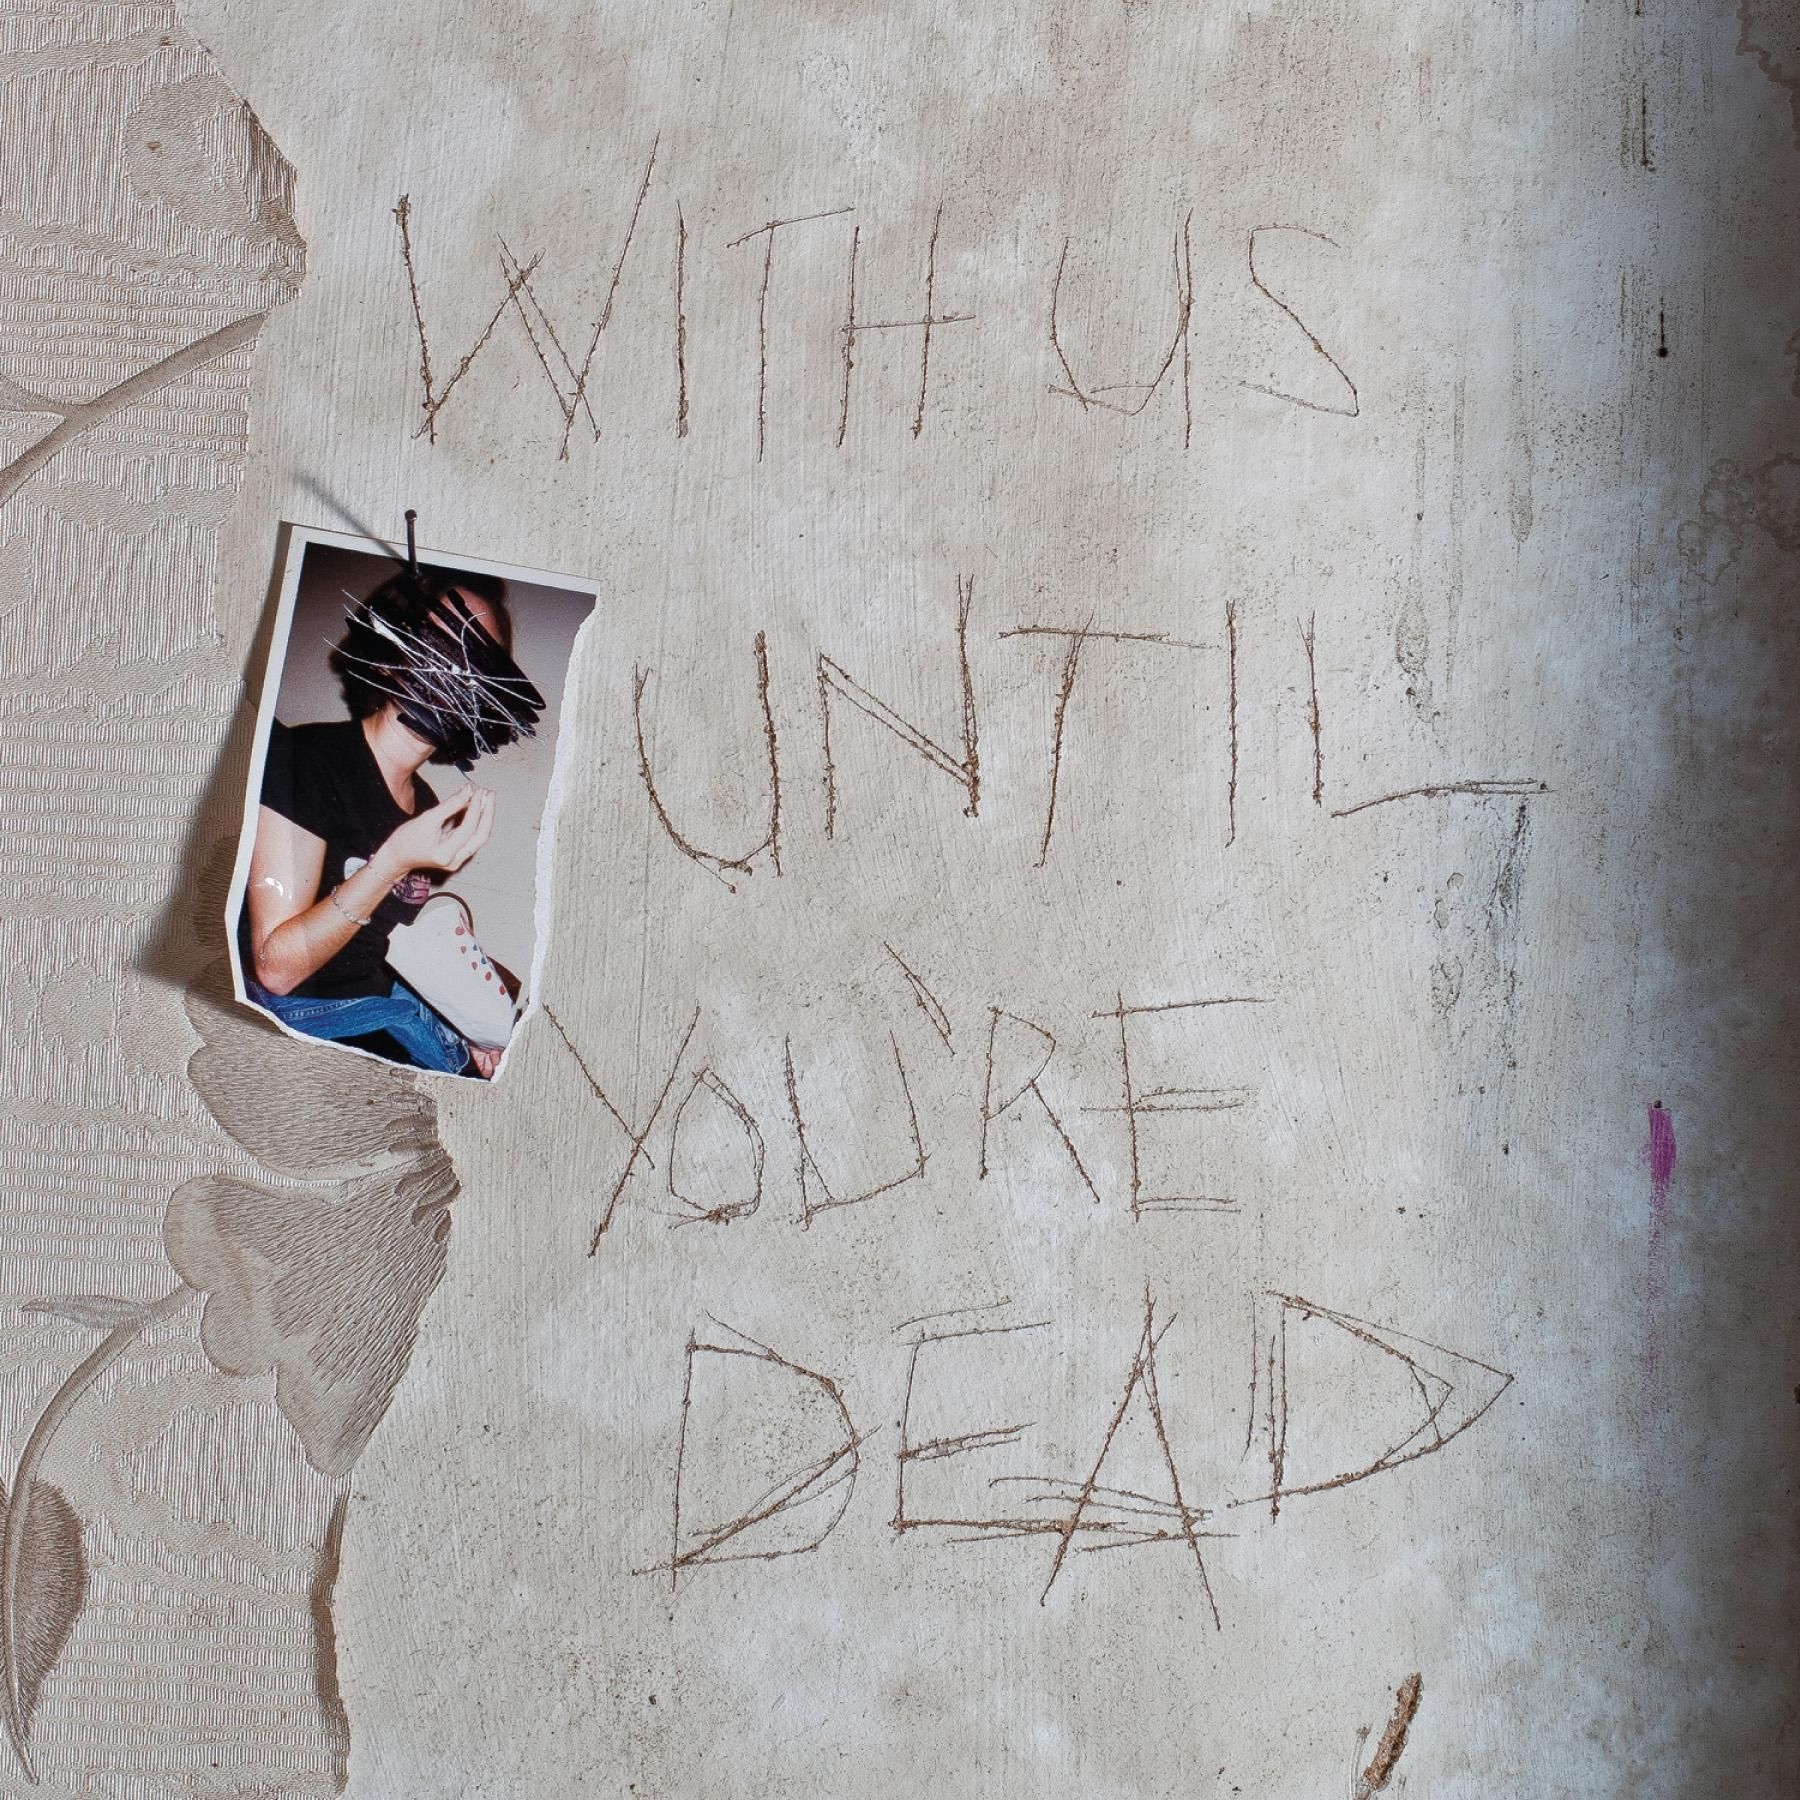 WITH US
UNTIL
YOU'RE
DEAD